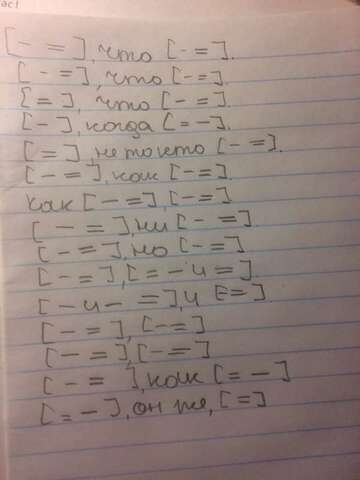 act
[- =], что [- =].
[- =], что [- =].
[=], что [- =].
[-], когда [= -].
[=], не то кто [- =].
[- =], как [- =].
как [- =], [- =]
[- =], ни [- =].
[- =], но [- =]
[- =], [= - и =].
[- и - =], и [=]
[- =], [- =]
[- =], [- =]
[- =], как [= -]
[= -], он же, [=]